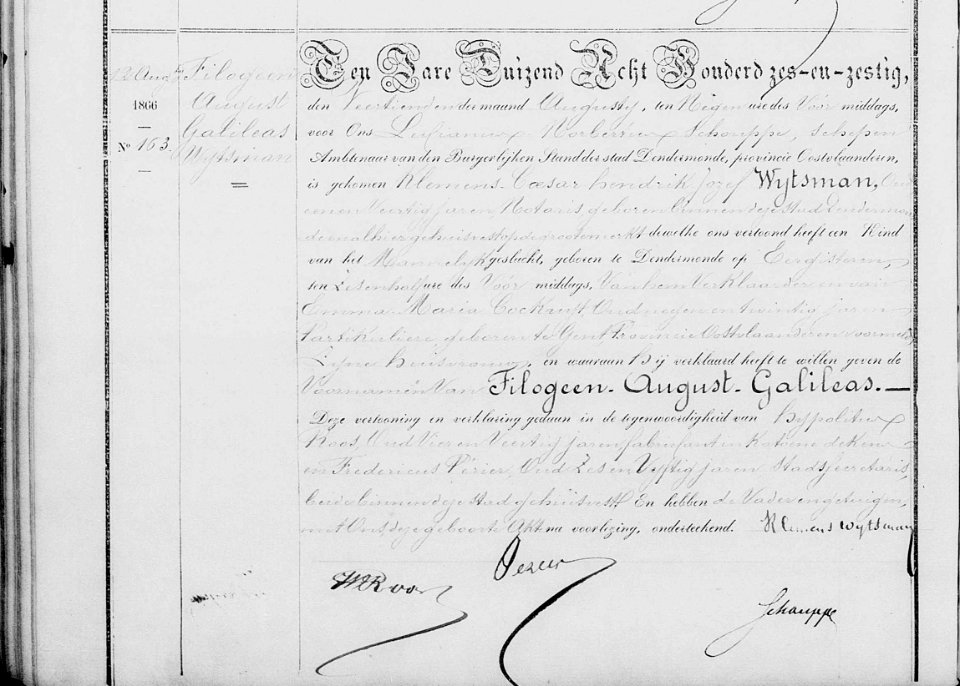 12 Aug.
1866
Nº 163.
Filogeen
August
Galileas
Wytsman
Ten Jare Duizend Acht Honderd zes-en-zestig,
den Veertienden der maand Augusty, ten Negen ure des Voor middags,
voor Ons Norbertus Schouppe, Schepen
Ambtenaar van den Burgerlijken Stand der stad Dendermonde, provincie Oostvlaanderen,
is gekomen Klemens Cæsar hendrik Jozef Wytsman, Oud
eenen Veertig jaren, Notaris geboren binnen deze stad
alhier gehuisvest op de groote merkt dewelke ons vertoond heeft een Kind
van het Mannelyk geslacht, geboren te Dendermonde op Eergisteren,
ten Zesenhalf ure des Voor middags, Van hem Verklaarder en van
Emma Maria Cockuyt, Oud negen en twintig jaren
Partikuliere geboren te Gent Provincie Oostvlaanderen
Zyne huisvrouw, en waaraan hij verklaard heeft te willen geven de
Voornamen Van Filogeen - August - Galileas. —
Deze vertooning en verklaring gedaan in de tegenwoordigheid van
Roos, Oud Vier en Veertig jaren fabriekant in Katoene
en Fredericus Oud Zes en Vyftig jaren Stads secretaris,
beide binnen deze stad gehuisvest En hebben de Vader en getuigen,
met Ons deze geboorte Akt na voorlezing, onderteekend. Klemens Wytsman
Roos
Schouppe